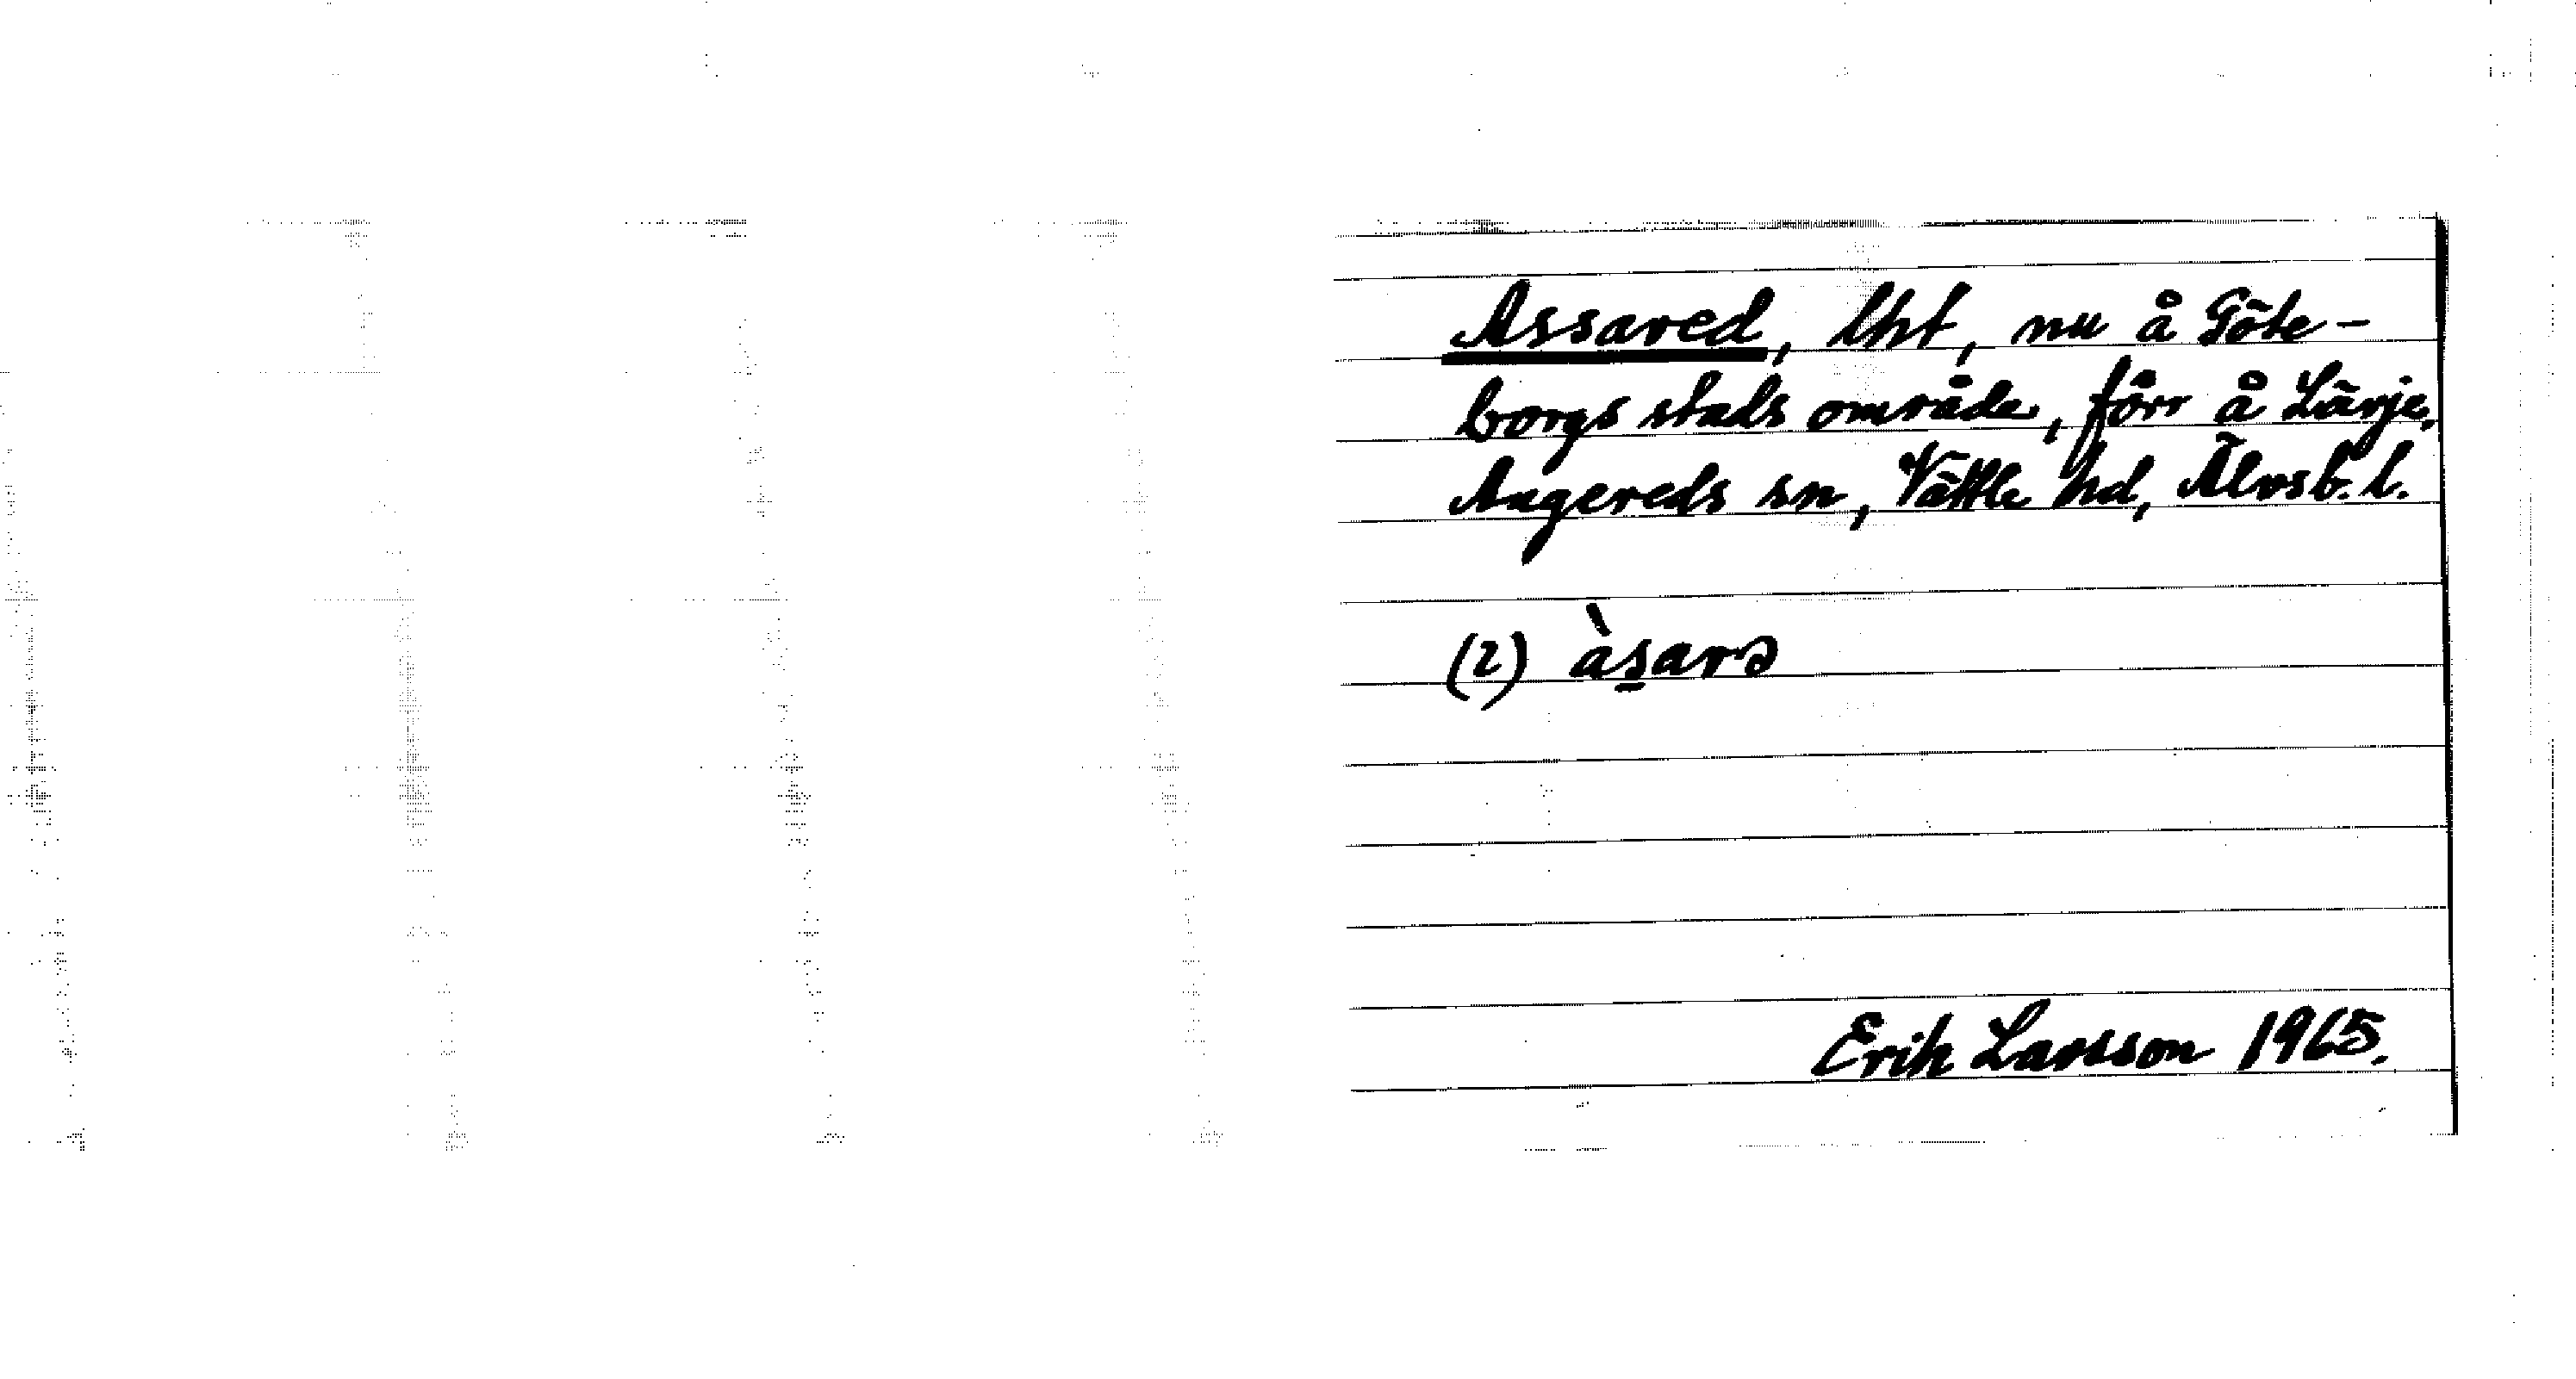 Assared, lht, nu å Göte-
borgs stads område, förr å Lärje,
Angereds sn, Vättle hd, Älvsb. l.
(2) às̱arə
Erik Larsson 1965.